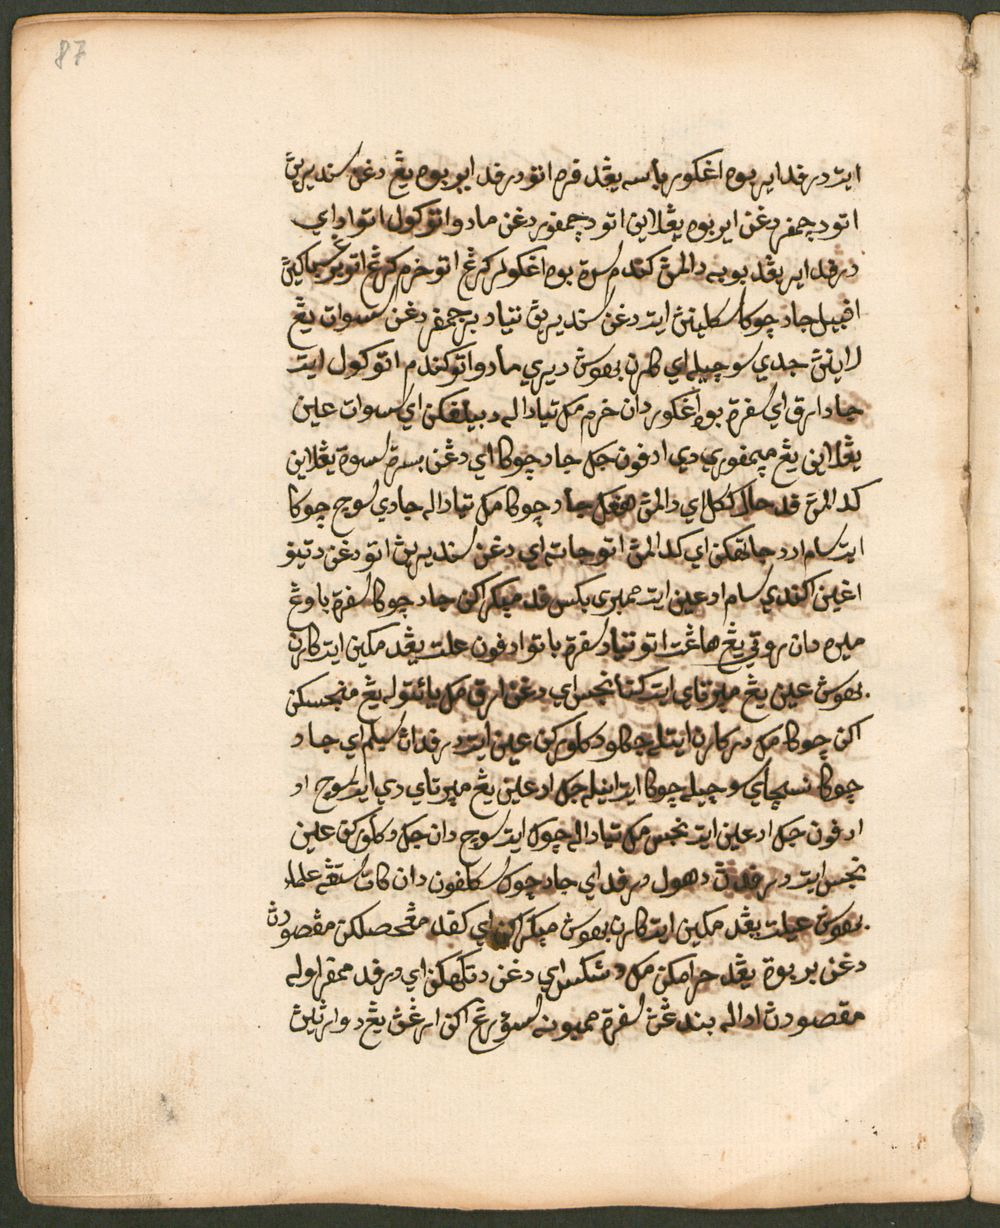 87
ايت درفد اير بوه اڠڬور ياسه يڠد فره اتو درفد اير بوه يڠ دڠن سنديرين
اتو دچمفر دڠن اير بوه يڠلاين اتو دچمفور دڠن مادو اتو ڬول اتو اداي
درفد اير يڠد بوبه دالمڽ ڬندم سرة بوه اڠڬور كريڠ اتو خرم كريڠ اتو
افبيل جاد چوكا سكلينڽ ايت دڠن سنديرين تياد برچمفر دڠن سسوات يڠ
لاينڽ جدي سوچيله اي كارن بهوسڽ ديري مادو اتو ڬندم اتو ڬول ايت
جاد ارق اي سفرة بوه اڠڬور دان خرم مك تياداله دبيلڠكن اي سسوات عين
يڠلاين يڠ مچمفوري دي ادفون جك جاد چوكا اي دڠن بسرة سسوة يڠلاين
كدالمڽ فد حال ككل اي دالمڽ هڠݢ جاد چوكا مك تياداله جادي سوچ چوكا
ايت سام اد دجاتهكن اي كدالمڽ اتو جاته اي دڠن سنديرين اتو دڠن دتيڤ
اڠين اكندي سام اد عين ايت ممبري بكس فد مڽكراكن جاد چوكا سفرة باوڠ
ميره دان روتي يڠ هاڠت اتو تياد سفرة باتو ادفون علت يڠد مكين ايت كارن
بهوسڽ عين يڠ مڽرتاي ايت كنا نجس اي دڠن ارق مك يائيتوله يڠ منجسكن
اكن چوكا مك دركارن اينله جكلو دكلوركن عين ايت درفدان سبلم اي جاد
چوكا نسچاي سوچيله چوكا ايت اينله جك اد عين يڠ مڽرتاي دي ايت سوچ اد
ادفون جك اد عين ايت نجس مك تياداله چوك ايت سوچ دان جك دكلوركن عين
نجس ايت درفدڽ دهول درفد اي جاد چوك سكلفون دان كات ستڠه علماء
بهوسڽ عيلت يڠد مكين ايت كارن بهوسڽ مڽكراكن اي كفد مڠحصلكن مقصودڽ
دڠن بربوة يڠد حرامكن مك دشكس اي دڠن دتڬهكن اي درفد ممفراوله
مقصودڽ اداله بندڠڽ سفرة ممبونه سسورڠ اكن اورڠڽ يڠ دوارثين